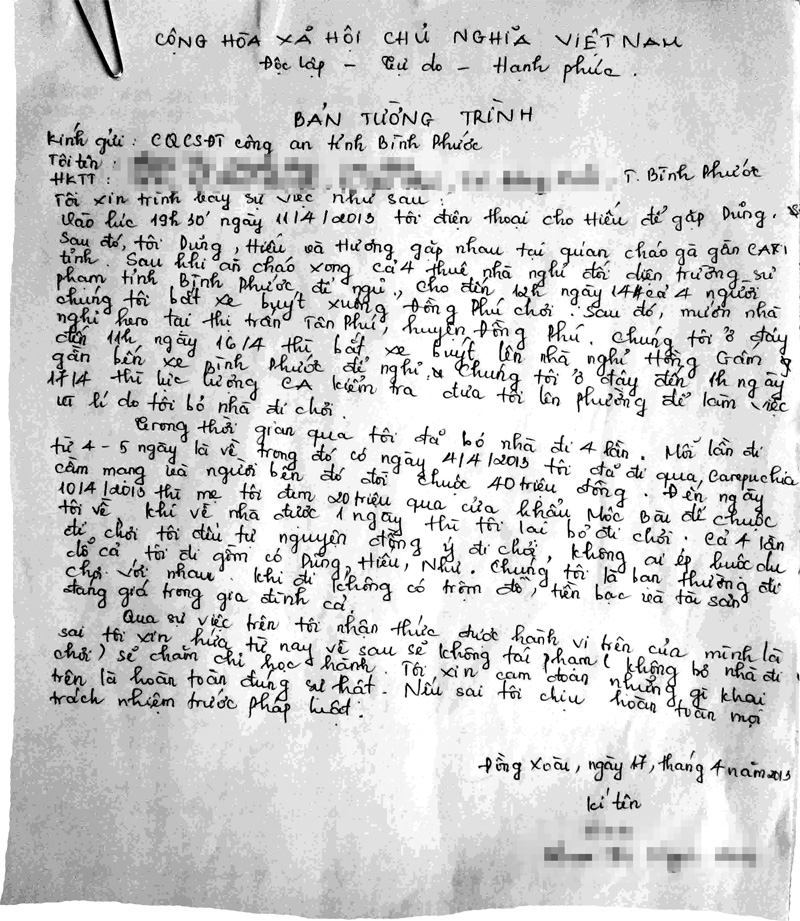 CỘNG HÒA XÃ HỘI CHỦ NGHĨA VIỆT NAM
Độc lập - Tự do - Hạnh phúc.
BẢN TƯỜNG TRÌNH
Kính gửi: CQCSĐT công an tỉnh Bình Phước
Tôi tên:
HKTT: , T. Bình Phước
Tôi xin trình bày sự việc như sau:
Vào lúc 19h30' ngày 11/4/2013 tôi điện thoại cho Hiếu để gặp Dũng.
Sau đó, tôi Dũng, Hiếu và Hương gặp nhau tại quán cháo gà gần CA
tỉnh. Sau khi ăn cháo xong cả 4 thuê nhà nghỉ đối diện trường sư
phạm tỉnh Bình Phước để ngủ, cho đến 12h ngày 14/4 cả 4 người
chúng tôi bắt xe buýt xuống Đồng Phú chơi. Sau đó, mướn nhà
nghỉ hero tại thị trấn Tân Phú, huyện Đồng Phú. Chúng tôi ở đây
đến 11h ngày 16/4 thì bắt xe buýt lên nhà nghỉ Hồng Gấm
gần bến xe Bình Phước để nghỉ. Chúng tôi ở đây đến 1h ngày
17/4 thì lực lượng CA kiểm tra đưa tôi lên phường để làm việc
vì lí do tôi bỏ nhà đi chơi.
Trong thời gian qua tôi đã bỏ nhà đi 4 lần. Mỗi lần đi
từ 4-5 ngày là về trong đó có ngày 4/4/2013 tôi đã đi qua Carepuchia
cầm mạng và người bên đó đòi chuộc 40 triệu đồng. Đến ngày
10/4/2013 thì mẹ tôi đem 20 triệu qua cửa khẩu Mộc Bài để chuộc
tôi về. khi về nhà được 1 ngày thì tôi lại bỏ đi chơi. Cả 4 lần
đi chơi tôi đều tự nguyện đồng ý đi chơi, không ai ép buộc dụ
dỗ cả tôi đi gồm có Dũng, Hiếu, Như. Chúng tôi là bạn thường đi
chơi với nhau. khi đi không có trộm đồ, tiền bạc và tài sản
đáng giá trong gia đình cả.
Qua sự việc trên tôi nhận thức được hành vi trên của mình là
sai tôi xin hứa từ nay về sau sẽ không tái phạm (không bỏ nhà đi
chơi) sẽ chăm chỉ học hành. Tôi xin cam đoan những gì khai
trên là hoàn toàn đúng sự thật. Nếu sai tôi chịu hoàn toàn mọi
trách nhiệm trước pháp luật.
Đồng Xoài, ngày 17, tháng 4 năm 2013
kí tên